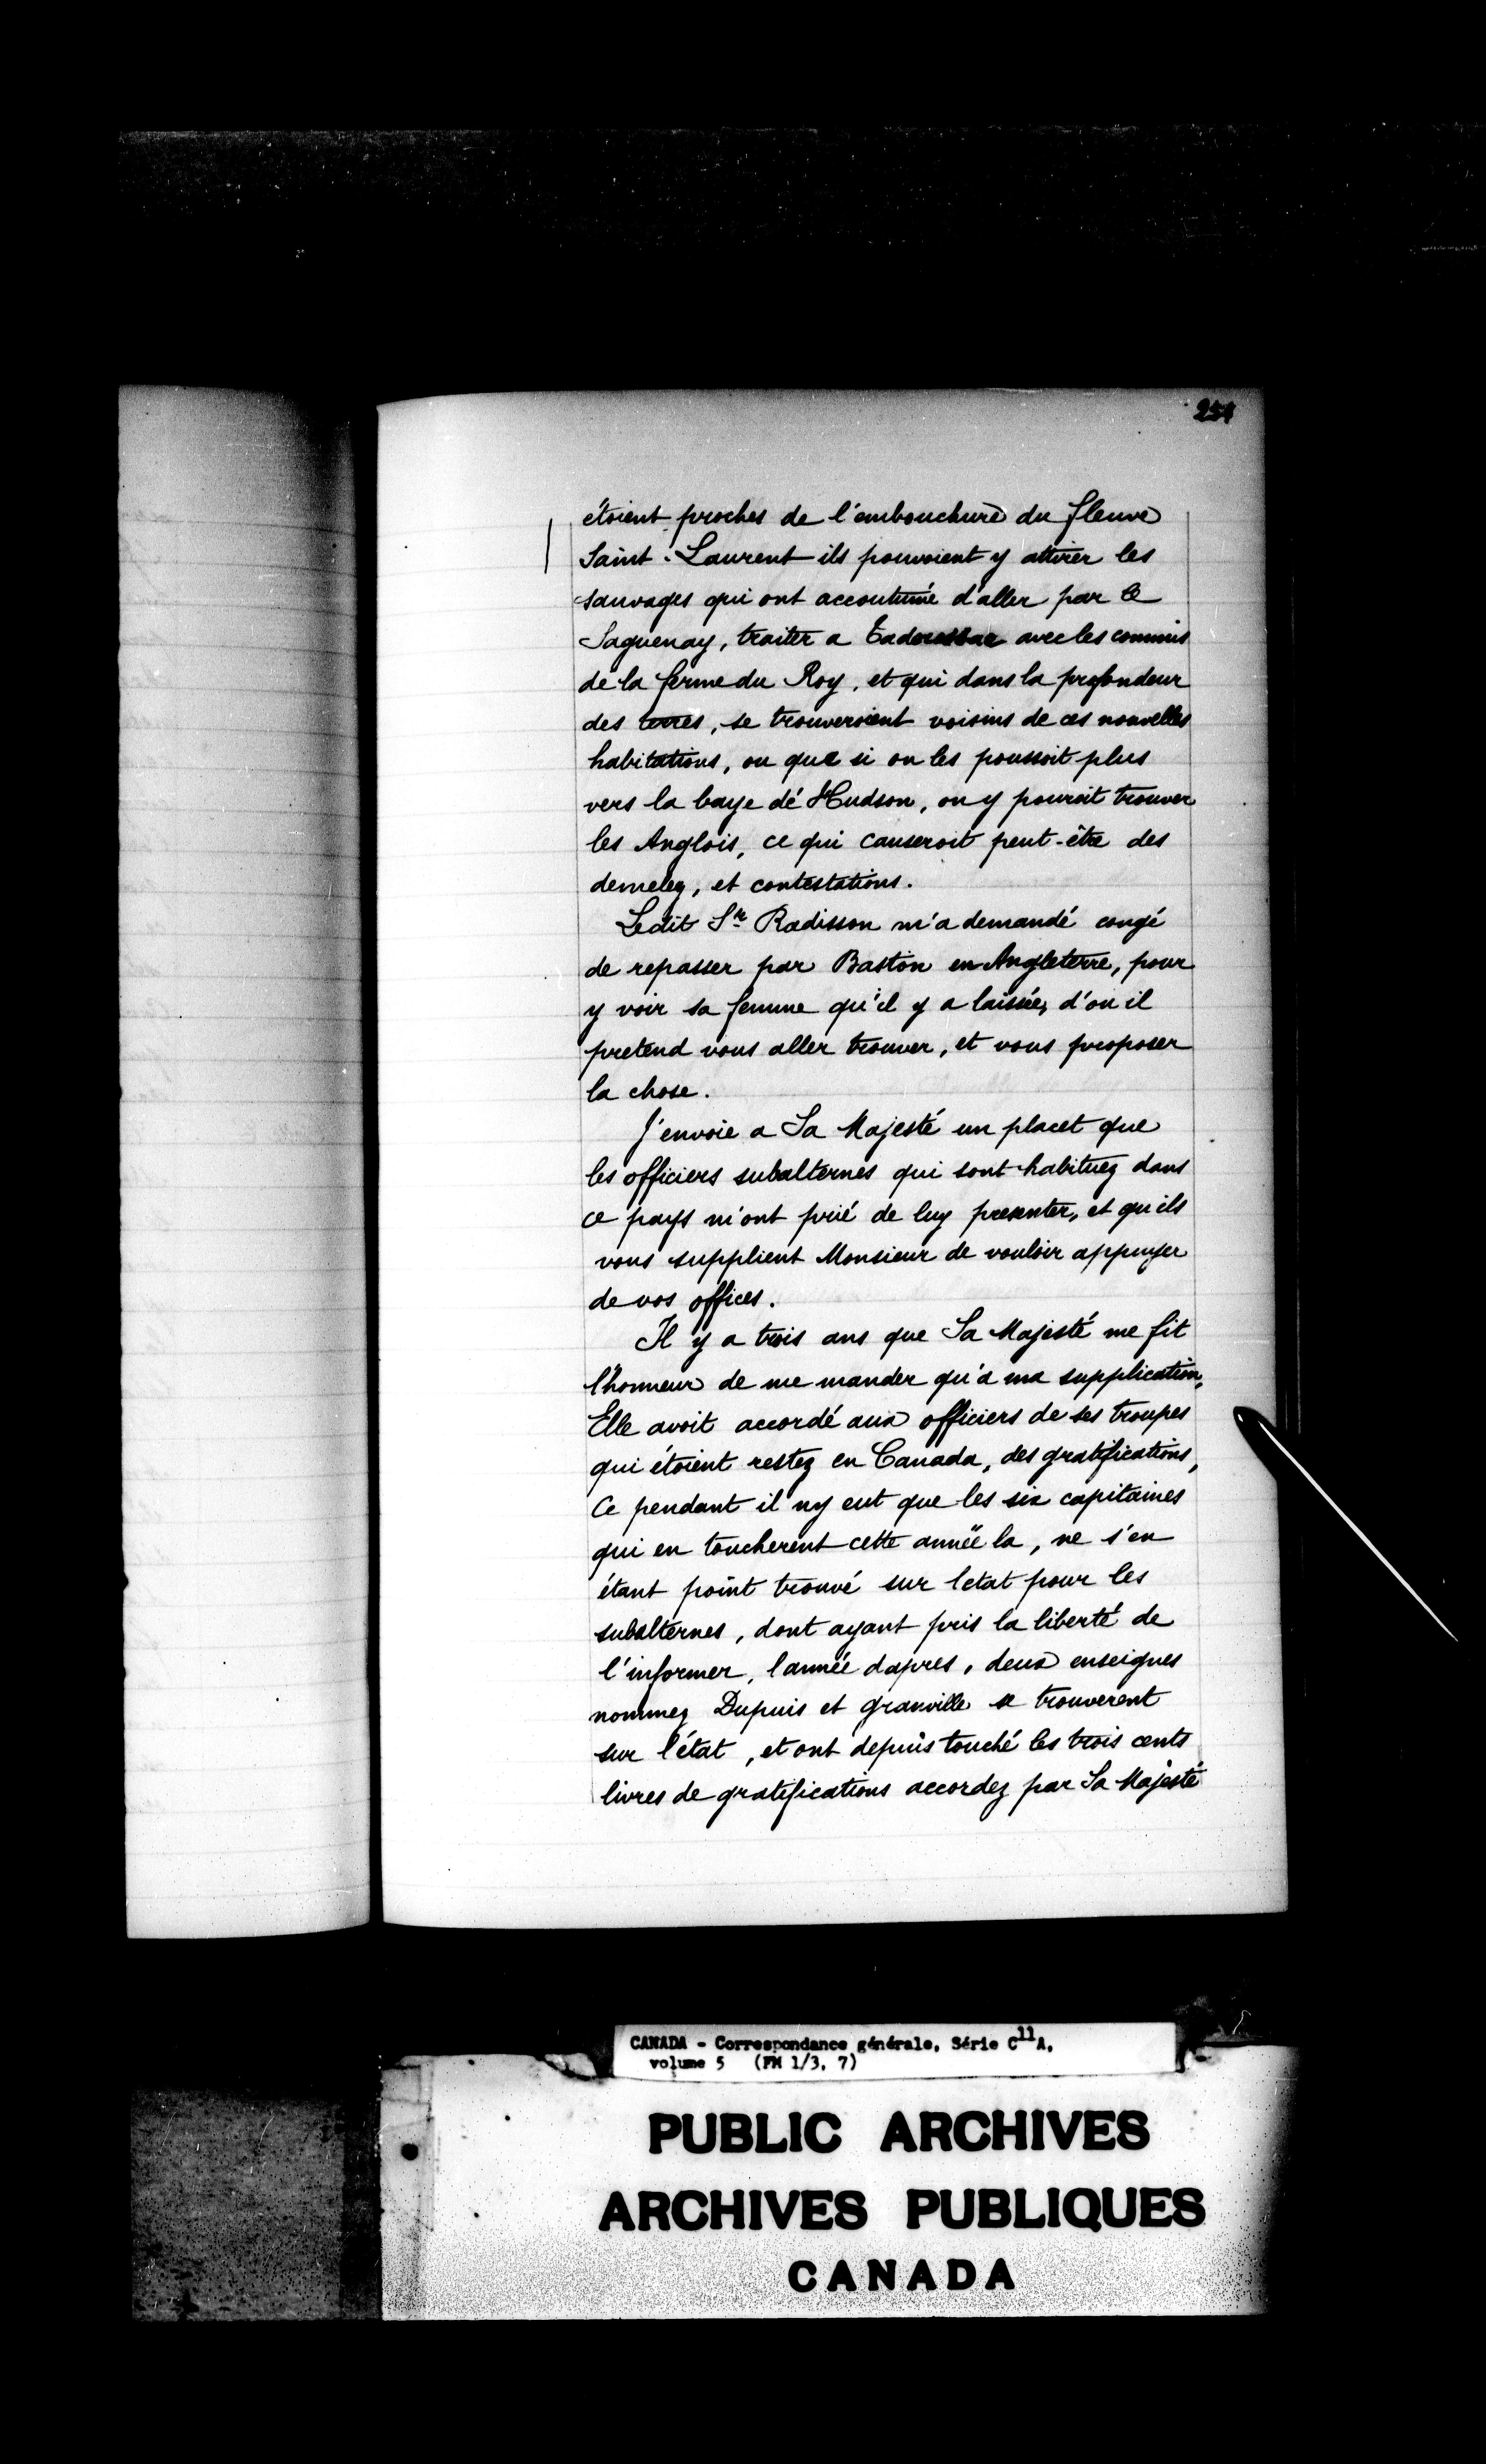 254
étoient proches de l'embouchure du fleuve
Saint-Laurent ils pouvoient y attirer les
sauvages qui ont accoutumé d'aller par le
Saguenay, traiter a Tadoussac avec les commis
de la ferme du Roy, et qui dans la profondeur
des terres, se trouveroient voisins de ces nouvelles
habitations, ou que si on les poussoit plus
vers la baye de Hudson, on y pouroit trouver
les Anglois, ce qui causeroit peut-être des
demelez, et contestations.
Ledit Sr Radisson m'a demandé congé
de repasser par Baston en Angleterre, pour
y voir sa femme qu'il y a laissée, d'ou il
pretend vous aller trouver, et vous proposer
la chose.
J'envoie a Sa Majesté un placet que
les officiers subalternes qui sont habituez dans
ce pays m'ont prié de luy presenter, et qu'ils
vous supplient Monsieur de vouloir appuyer
de vos offices.
Il y a trois ans que Sa Majesté me fit
l'honneur de me mander qu'à ma supplication,
Elle avoit accordé aux officiers de ses troupes
qui étoient restez en Canada, des gratifications,
Ce pendant il ny eut que les six capitaines
qui en toucherent cette année la, ne s'en
étant point trouvé sur letat pour les
subalternes, dont ayant pris la liberté de
l'informer, l'année dapres, deux enseignes
nommez Dupuis et granville se trouverent
sur l'état, et ont depuis touché les trois cents
livres de gratifications accordez par Sa Majesté
CANADA - Correspondance générale, Série C11A,
volume 5 (FM 1/3, 7)
PUBLIC ARCHIVES
ARCHIVES PUBLIQUES
CANADA